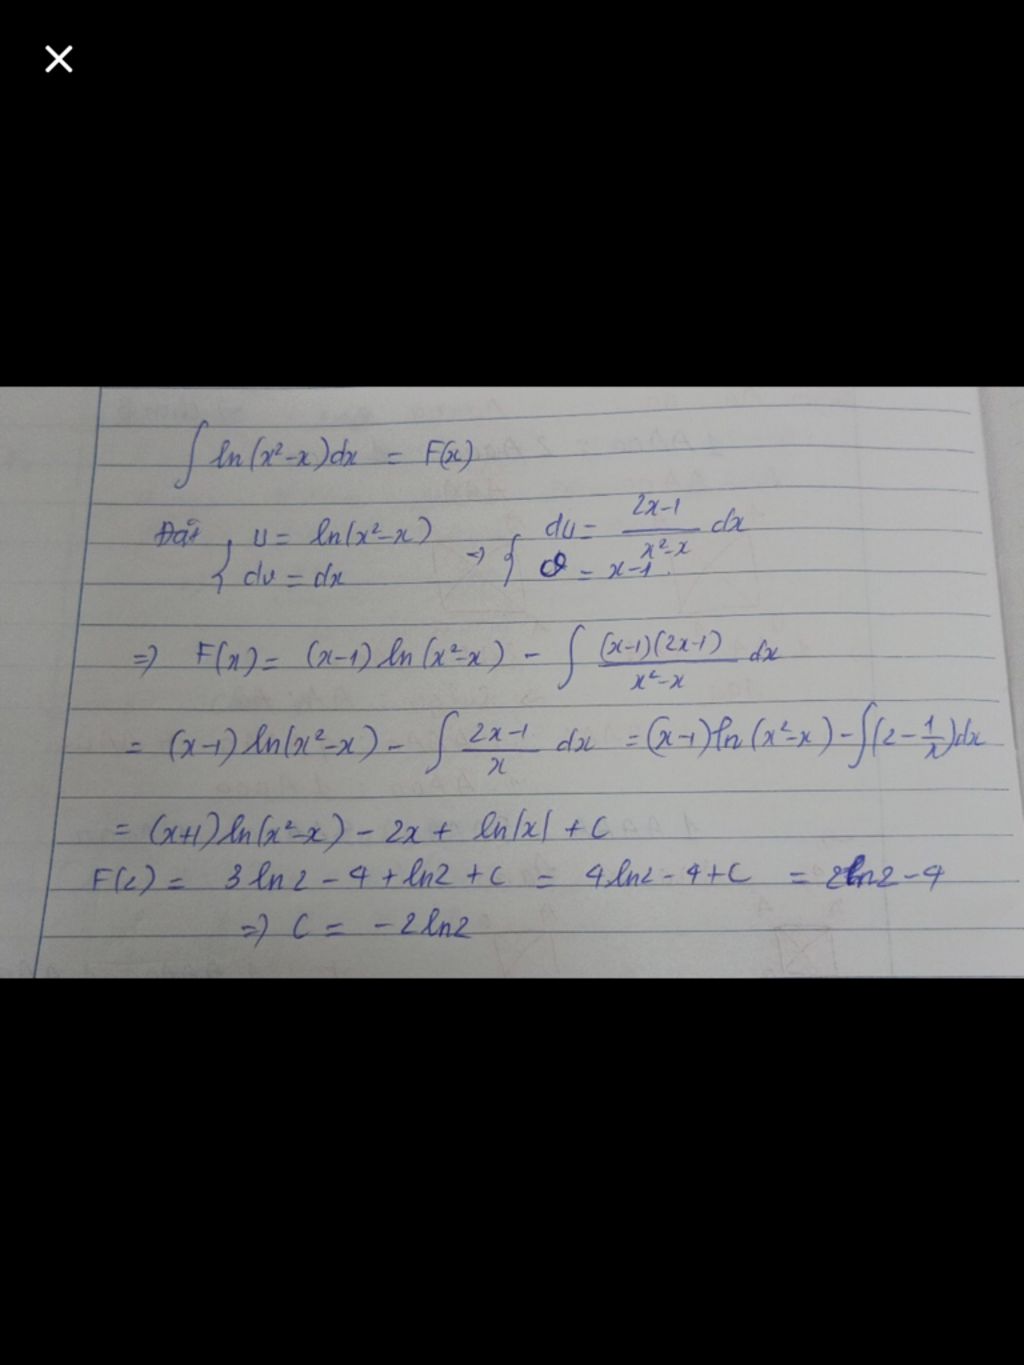 ∫ ln(x²-x)dx = F(x)
Đặt { u = ln(x²-x) => { du = (2x-1)/(x²-x) dx
dv = dx v = x-1.
=> F(x) = (x-1) ln(x²-x) - ∫ (x-1)(2x-1)/(x²-x) dx
= (x-1) ln(x²-x) - ∫ (2x-1)/x dx = (x-1)ln(x²-x) - ∫(2 - 1/x)dx
= (x+1)ln(x²-x) - 2x + ln|x| + C
F(2) = 3ln2 - 4 + ln2 + C = 4ln2 - 4 + C = 2ln2 - 4
=> C = -2ln2